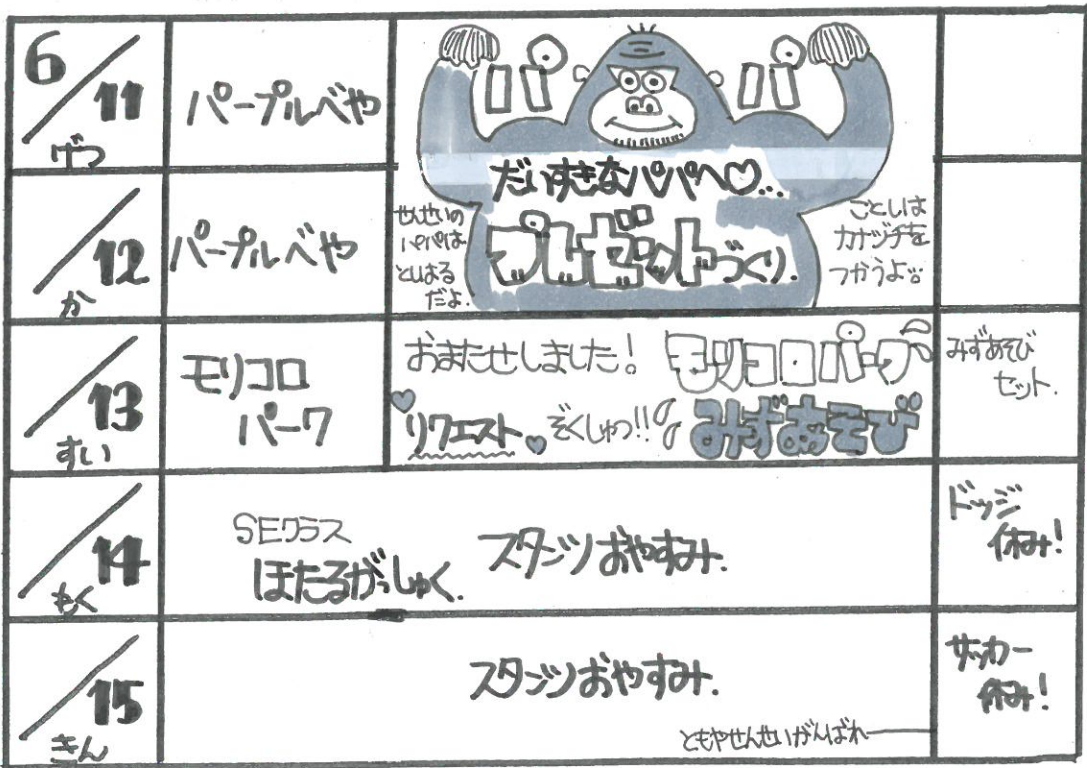 6/11
げつ
パープルべや
パパ
だいすきなパパへ♡...
プレゼントづくり.
せんせいの
パパは
としはる
だよ.
ことしは
カナヅチを
つかうよ
12
か
パープルべや
13
すい
モリコロ
パーク
おまたせしました! モリコロパーク
リクエスト ぞくしゅつ!! みずあそび
みずあそび
セット.
14
もく
SEクラス
ほたるがっしゅく.
スタンツおやすみ.
ドッジ
休み!
15
きん
スタンツおやすみ.
ともやせんせいがんばれー
サッカー
休み!